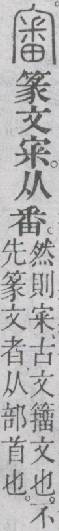 審篆文宷。从番。
然則宷古文籒文也。不
先篆文者。从部首也。